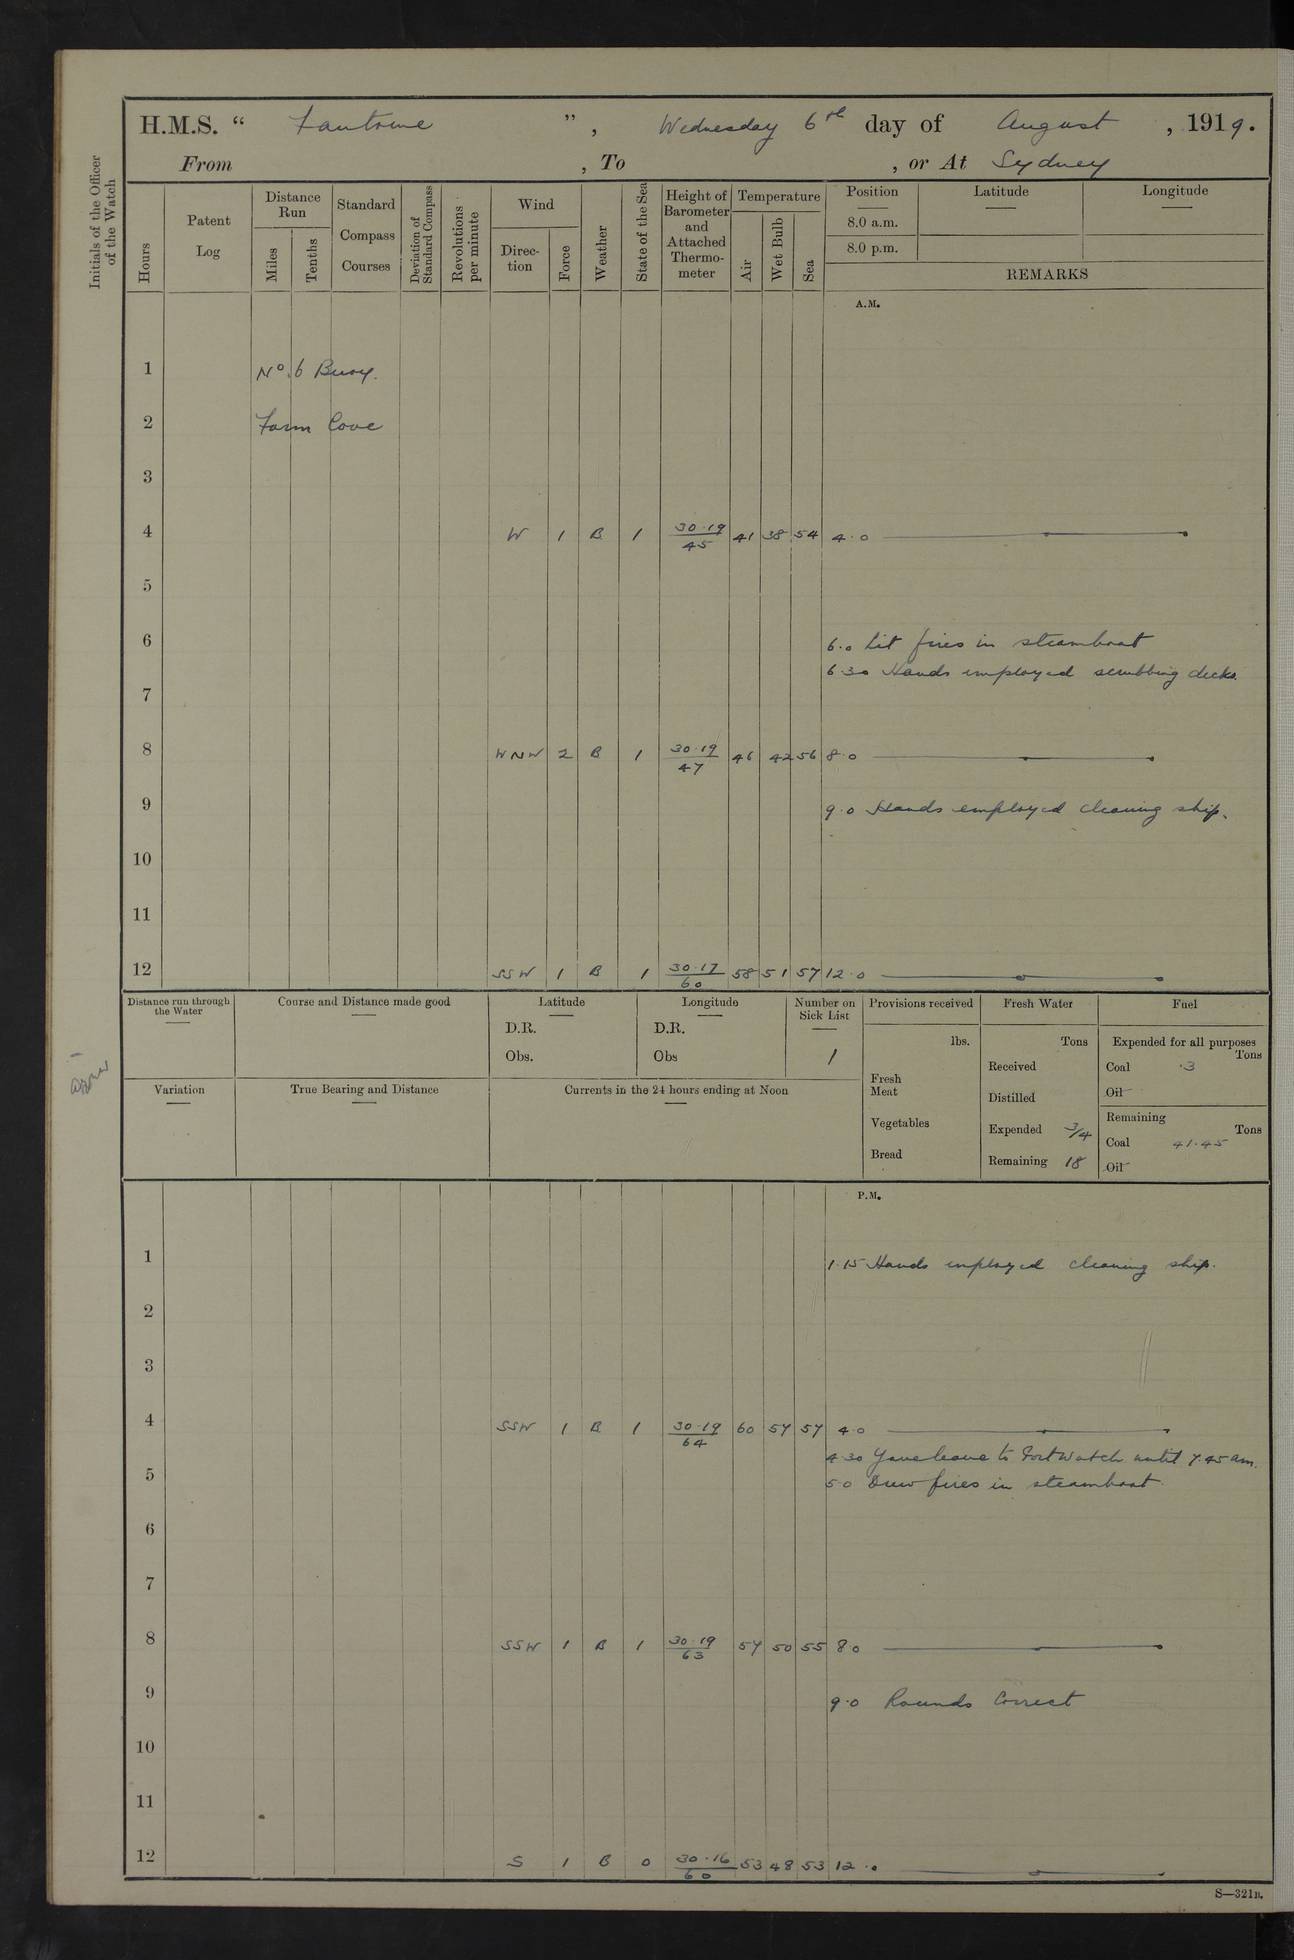 H.M.S. " Fantome ", Wednesday 6th day of August, 1919.
From , To , or At Sydney
Initials of the Officer of the Watch
Hours
Patent Log
Distance Run
Miles
Tenths
Standard Compass Courses
Deviation of Standard Compass
Revolutions per minute
Wind
Direction
Force
Weather
State of the Sea
Height of Barometer and Attached Thermometer
Temperature
Air
Wet Bulb
Sea
Position Latitude Longitude
8.0 a.m.
8.0 p.m.
REMARKS
A.M.
1 No. 6 Buoy.
2 Farm Cove
3
4 W 1 B 1 30.19/45 41 38 54 4.0
5
6 6.0 Lit fires in steamboat
6.30 Hands employed scrubbing decks.
7
8 WNW 2 B 1 30.19/47 46 42 56 8.0
9 9.0 Hands employed cleaning ship.
10
11
12 SSW 1 B 1 30.17/60 58 51 57 12.0
Distance run through the Water
Course and Distance made good
Latitude
D.R.
Obs.
Longitude
D.R.
Obs
Number on Sick List
1
Variation
True Bearing and Distance
Currents in the 24 hours ending at Noon
Provisions received
lbs.
Fresh Meat
Vegetables
Bread
Fresh Water
Tons
Received
Distilled
Expended 3/4
Remaining 18
Fuel
Expended for all purposes
Tons
Coal .3
Oil
Remaining
Tons
Coal 41.45
Oil
P.M.
1 1.15 Hands employed cleaning ship.
2
3
4 SSW 1 B 1 30.19/64 60 57 57 4.0
4.30 Gave leave to Port Watch until 7.45 am.
5 5.0 Drew fires in steamboat
6
7
8 SSW 1 B 1 30.19/63 57 50 55 8.0
9 9.0 Rounds Correct
10
11
12 S 1 B 0 30.16/60 53 48 53 12.0
S—321B.